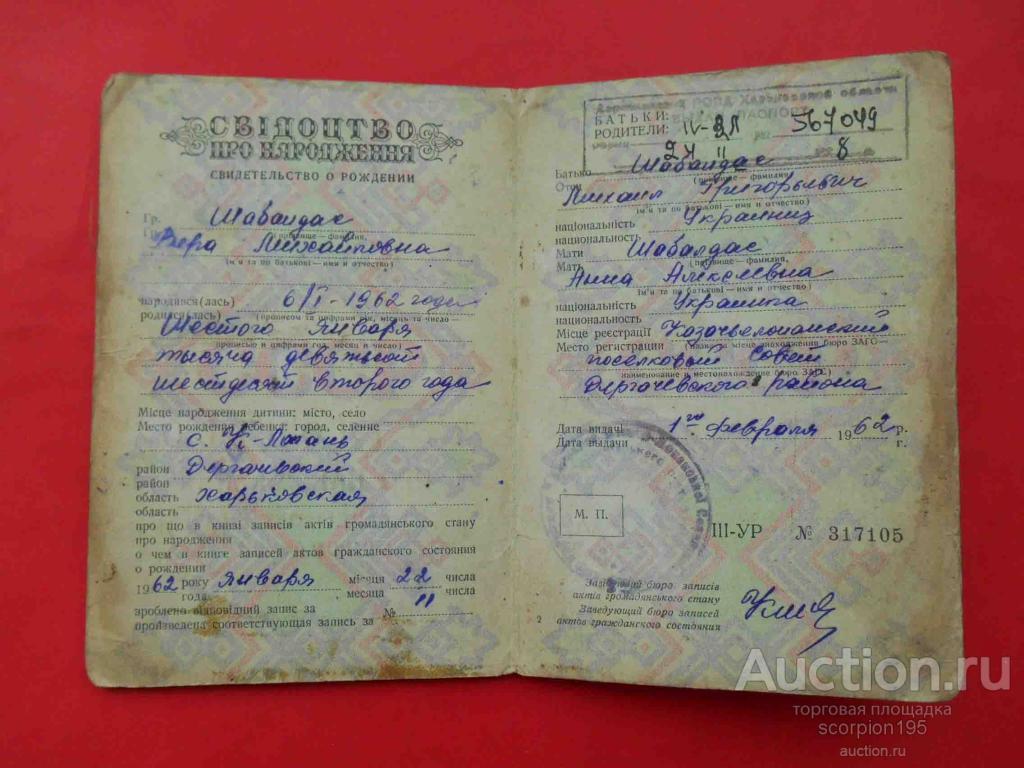 СВІДОЦТВО
ПРО НАРОДЖЕННЯ
СВИДЕТЕЛЬСТВО О РОЖДЕНИИ
Гр. Шабалдас
(прізвище — фамилия,
Вера Михайловна
ім'я та по батькові — имя и отчество)
народився(лась) 6/I - 1962 года
родился(лась) (прописом та цифрами рік, місяць та число —
Шестого Января
прописью и цифрами год, месяц и число)
тысяча девятьсот
шестьдесят второго года
Місце народження дитини: місто, село
Место рождения ребенка: город, селение
с. К-Лопань
район Дергачевский
район
область Харьковская
область
про що в книзі записів актів громадянського стану
про народження
о чем в книге записей актов гражданского состояния
о рождении
1962 року января місяця 22 числа
года месяца числа
зроблено відповідний запис за № 11
произведена соответствующая запись за
РОВД Харьковской области
ПАСПОРТ
БАТЬКИ:
РОДИТЕЛИ: IV-ВЛ 567049
24 II 8
Батько Шабалдас
Отец (прізвище — фамилия,
Михаил Григорьевич
ім'я та по батькові — имя и отчество)
національність Украинец
национальность
Мати Шабалдас
Мать (прізвище — фамилия,
Анна Алексеевна
ім'я та по батькові — имя и отчество)
національність Украинка
национальность
Місце реєстрації Казачьелопанский
Место регистрации (назва та місце знаходження бюро ЗАГС —
поселковый Совет
наименование и местонахождение бюро ЗАГС)
Дергачевского района
Дата видачі 1го февраля 1962 р.
Дата выдачи г.
М. П.
III-УР № 317105
Завідуючий бюро записів
актів громадянського стану
Заведующий бюро записей
актов гражданского состояния
2
Auction.ru
торговая площадка
scorpion195
auction.ru